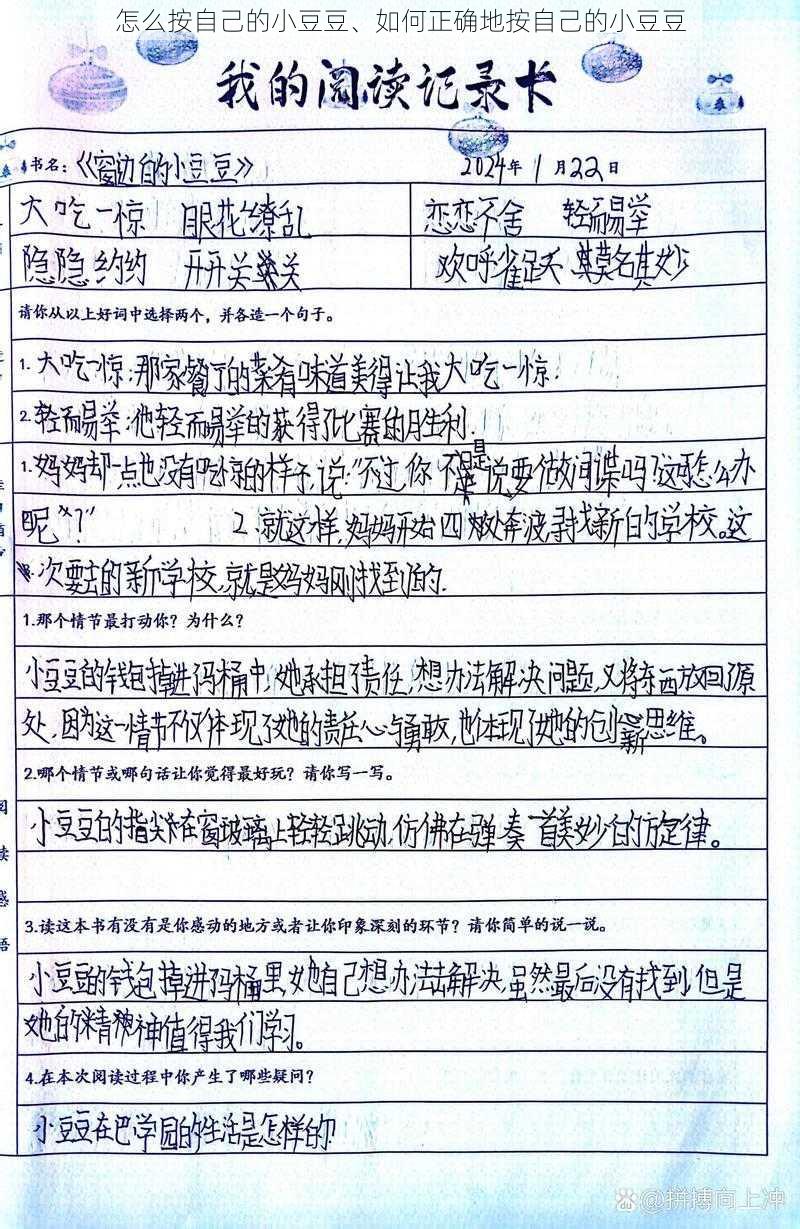 怎么按自己的小豆豆、如何正确地按自己的小豆豆
我的阅读记录卡
书名：《窗边的小豆豆》 2024年1月22日
大吃一惊 眼花缭乱 恋恋不舍 轻而易举
隐隐约约 开开关关 欢呼雀跃 莫名其妙
请你从以上好词中选择两个，并各造一个句子。
1.大吃一惊：那家餐厅的菜肴味道美得让我大吃一惊.
2.轻而易举：他轻而易举的获得了比赛的胜利.
1.妈妈却一点也没有吃惊的样子,说:"不过,你不是说要做间谍吗?这可怎么办
呢?" 2.就这样,妈妈开始四处奔波,寻找新的学校。这
次要去的新学校,就是妈妈刚找到的.
1.那个情节最打动你？为什么？
小豆豆的钱包掉进马桶中,她承担了责任,想办法解决问题,又将东西放回了原
处,因为这一情节不仅体现了她的责任心与勇敢,也体现了她的创新思维。
2.哪个情节或哪句话让你觉得最好玩？请你写一写。
小豆豆的指尖在窗玻璃上轻轻跳动,仿佛在弹奏一首美妙的旋律。
3.读这本书有没有是你感动的地方或者让你印象深刻的环节？请你简单的说一说。
小豆豆的钱包掉进马桶里,她自己想办法去解决,虽然最后没有找到,但是
她的精神值得我们学习。
4.在本次阅读过程中你产生了哪些疑问？
小豆豆在巴学园的生活是怎样的?
阅
读
感
悟
@拼搏向上冲